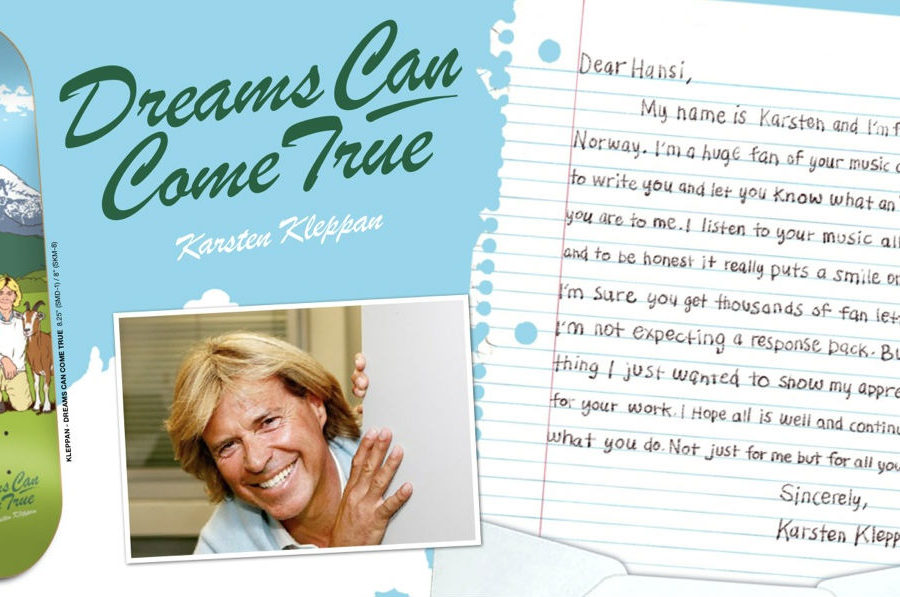 Dreams Can
Come True
Karsten Kleppan
KLEPPAN - DREAMS CAN COME TRUE 8.25" (SMD-1) / 8" (SKM-8)
Can
True
Kleppan
Dear Hansi,
My name is Karsten and I'm f
Norway. I'm a huge fan of your music
to write you and let you know what an
you are to me. I listen to your music all
and to be honest it really puts a smile
I'm sure you get thousands of fan let
I'm not expecting a response back. Bu
thing I just wanted to show my appre
for your work. I Hope all is well and continu
what you do. Not just for me but for all you
Sincerely,
Karsten Klepp